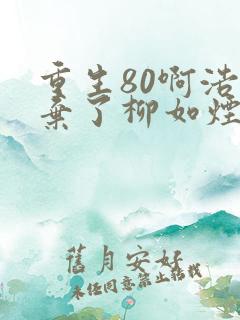 重生80啊浩
弃了柳如烟
舊月安好
未经同意禁止转载